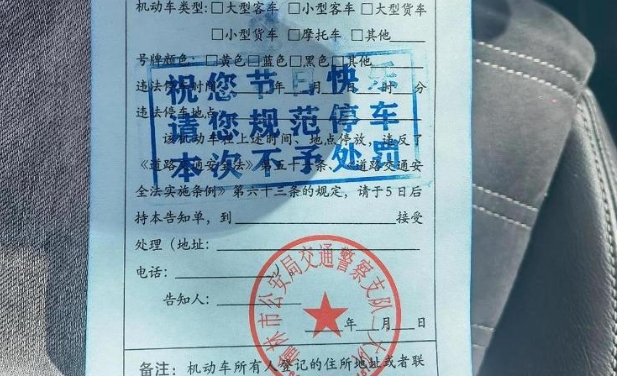 机动车类型:□大型客车 □小型客车 □大型货车
□小型货车 □摩托车 □其他
号牌颜色:□黄色□蓝色□黑色□其他
违法停车时间 年 月 日 时 分
祝您节日快乐
违法停车地点
请您规范停车
该机动车在上述时间、地点停放,违反了
本次不予处罚
《道路交通安全法》第五十六条、《道路交通安
全法实施条例》第六十三条的规定,请于5日后
持本告知单,到 接受
处理(地址:
电话:
告知人:
年 月 日
市公安局交通警察支队
备注:机动车所有人登记的住所地址或者联